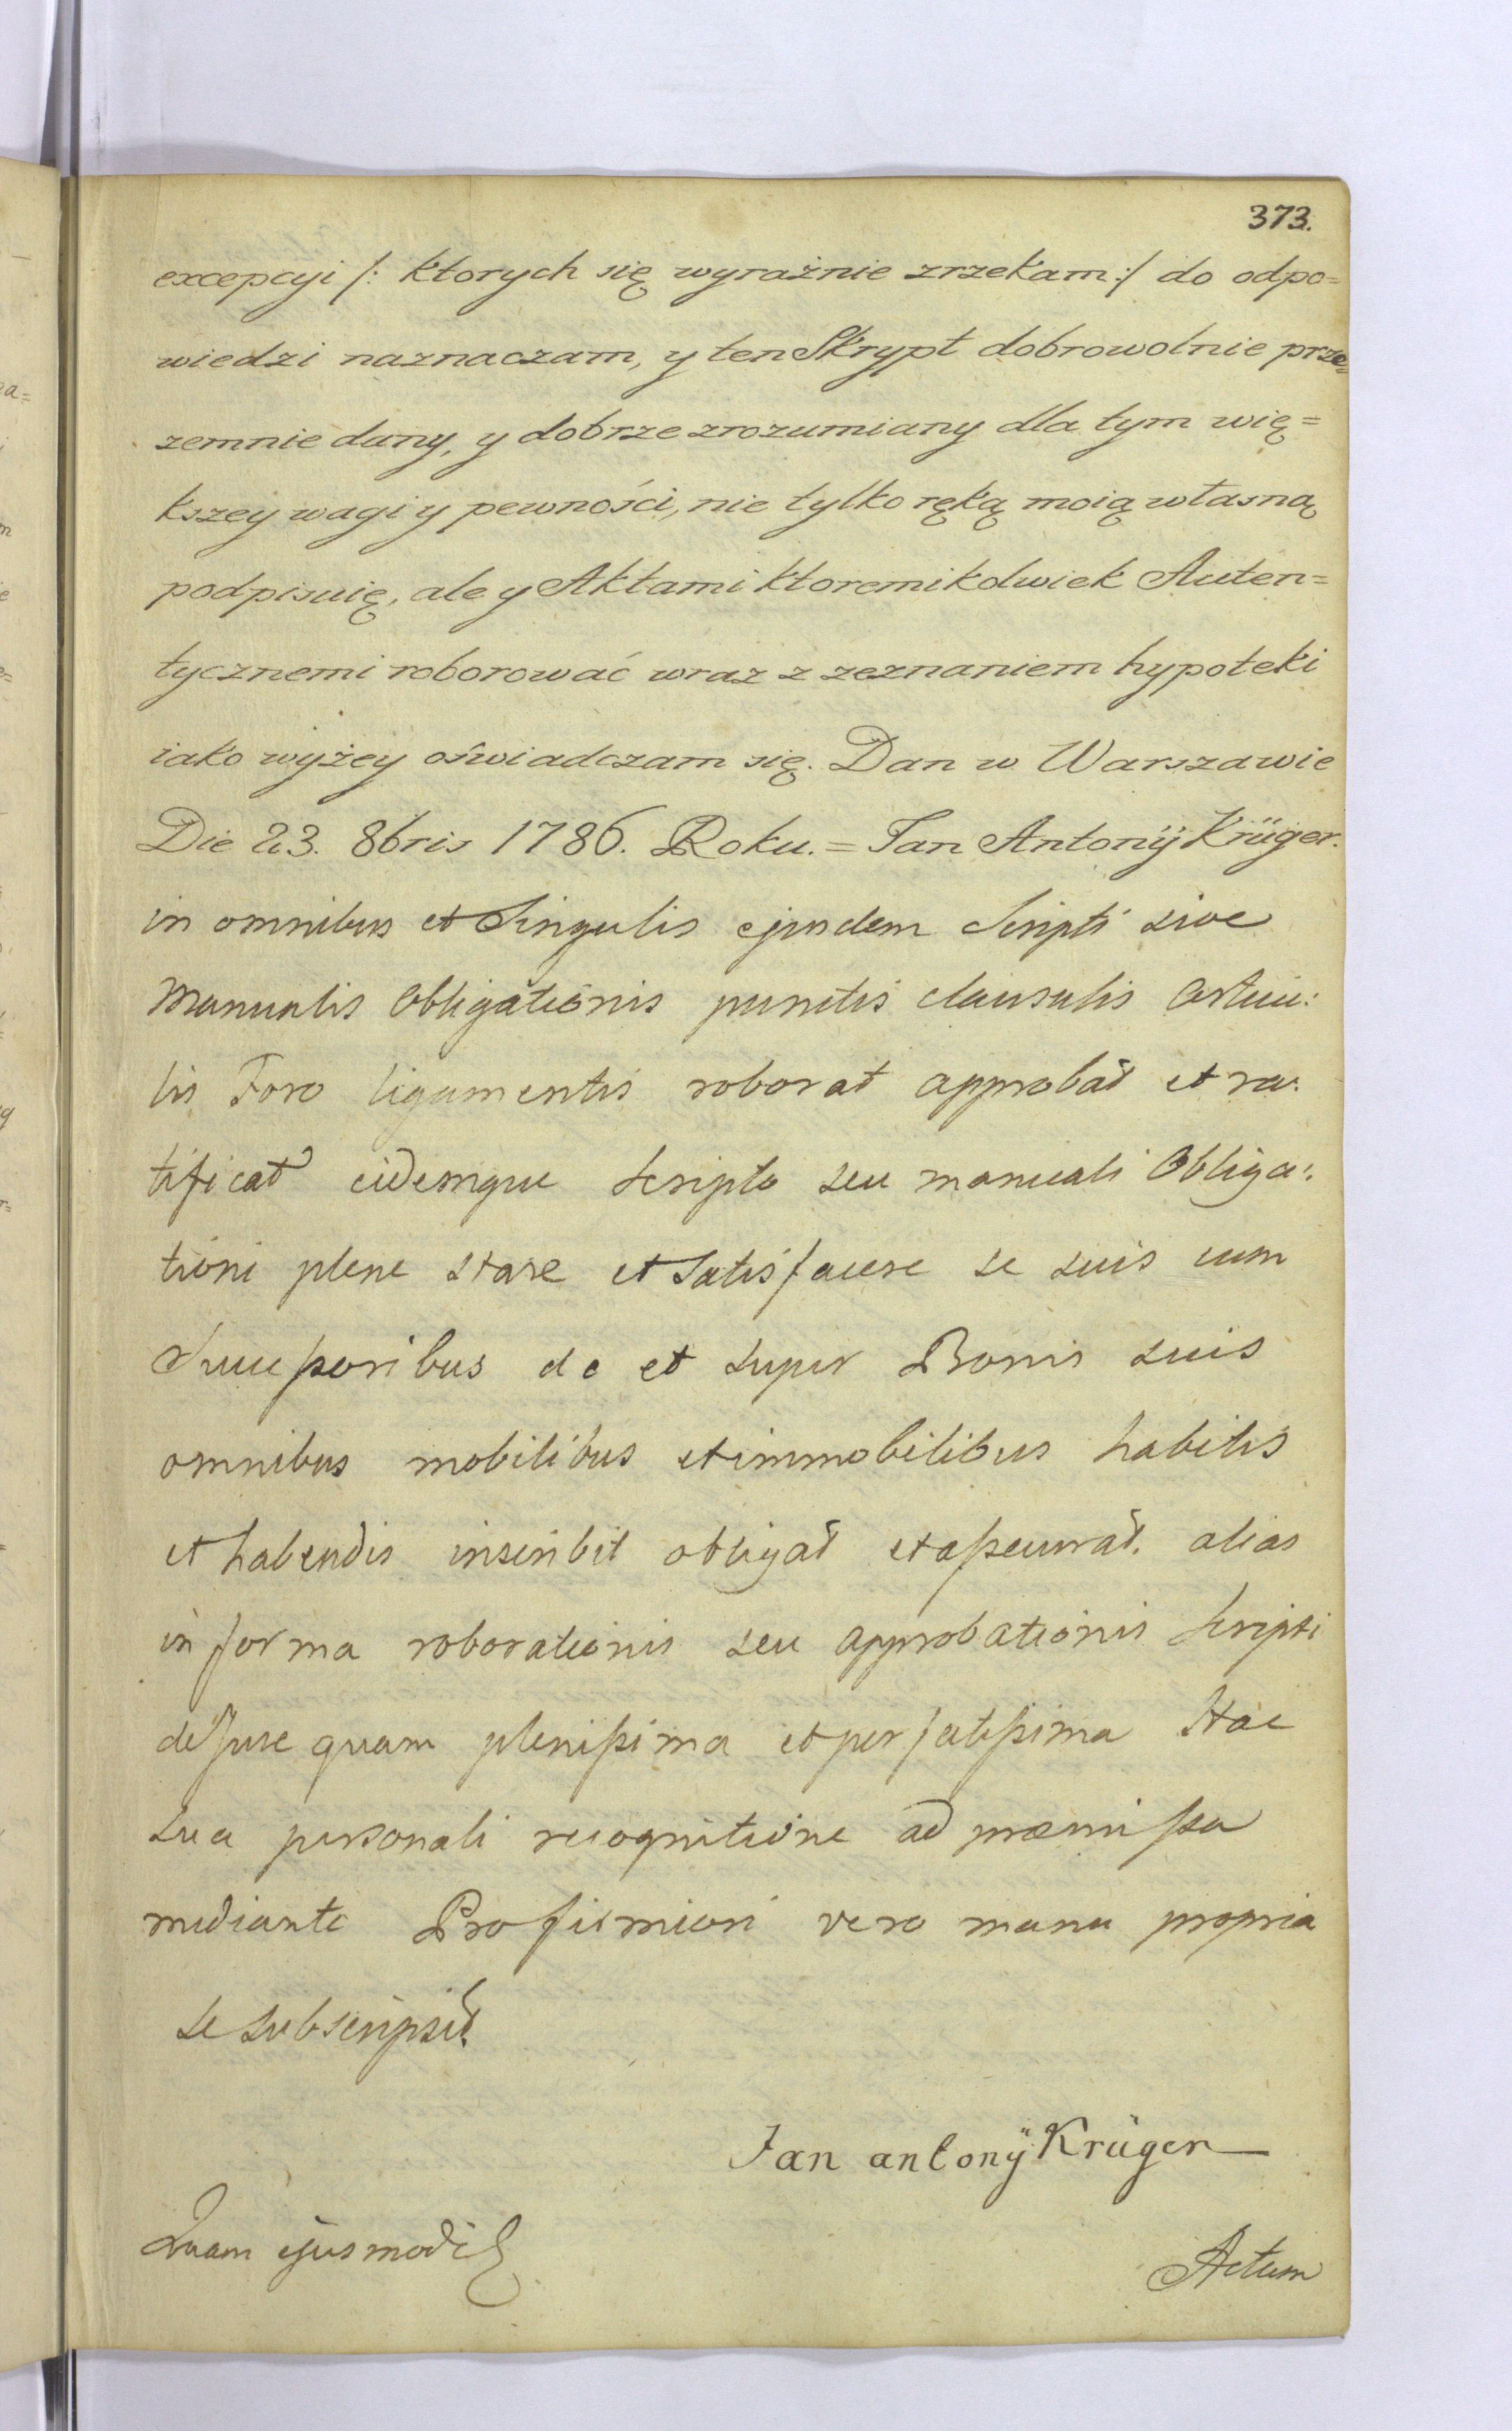 373.
excepcyi /: ktorych się wyraźnie zrzekam :/ do odpo=
wiedzi naznaczam, y ten Skrypt dobrowolnie prze=
zemnie dany, y dobrze zrozumiany dla tym wię=
kszey wagi y pewności, nie tylko ręką moią własną
podpisuię, ale y Aktami ktoremikolwiek Auten=
tycznemi roborować wraz z zeznaniem hypoteki
iako wyżey oświadczam się. Dan w Warszawie
Die 23. 8bris 1786. Roku. = Jan Antonÿ Krüger.
in omnibus et Singulis ejusdem Scripti sive
Manualis Obligationis punctis clausulis Articu:
lis Foro ligamentis roborat approbat et ra:
tificat eidemque Scripto seu manuali Obliga:
tioni plene stare et Satisfacere se suis cum
Successoribus de et super Bonis suis
omnibus mobilibus et immobilibus habitis
et habendis inscribit obligat et assecurat. alias
in forma roborationis seu approbationis Scripti
de Jure quam plenissima et perfectissima Hac
Sua personali recognitione ad præmissa
mediante Pro firmiori vero manu propria
se subscripsit.
Jan antonÿ Krüger
Quam ejusmodi
Actum